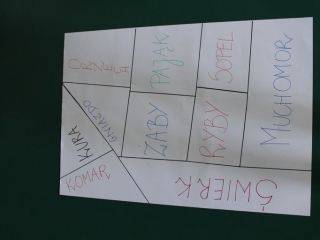 ORZECH
PAJĄK
SOPEL
MUCHOMOR
GNIAZDO
ŻABY
RYBY
KURA
KOMAR
ŚWIERK